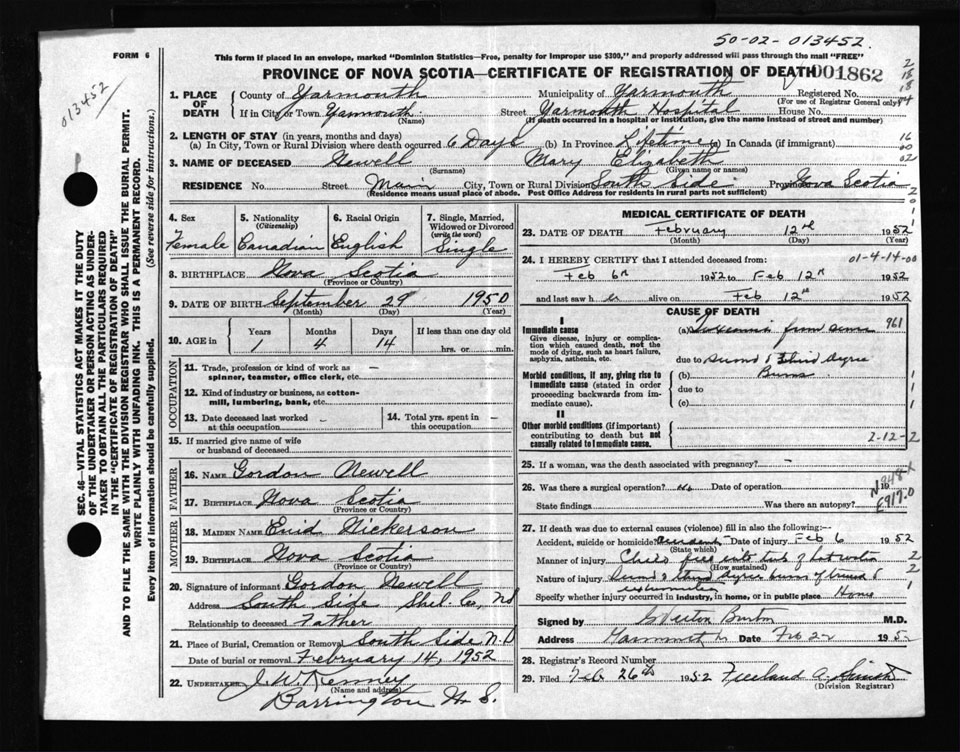 50-02-013452
FORM 6
This form if placed in an envelope, marked "Dominion Statistics—Free, penalty for improper use $300," and properly addressed will pass through the mail "FREE"
PROVINCE OF NOVA SCOTIA—CERTIFICATE OF REGISTRATION OF DEATH 001862
013452
SEC. 46—VITAL STATISTICS ACT MAKES IT THE DUTY
OF THE UNDERTAKER OR PERSON ACTING AS UNDER-
TAKER TO OBTAIN ALL THE PARTICULARS REQUIRED
IN THE "CERTIFICATE OF REGISTRATION OF DEATH"
AND TO FILE THE SAME WITH THE DIVISION REGISTRAR WHO SHALL ISSUE THE BURIAL PERMIT.
WRITE PLAINLY WITH UNFADING INK. THIS IS A PERMANENT RECORD.
Every item of information should be carefully supplied. (See reverse side for instructions.)
1. PLACE OF DEATH
County of Yarmouth Municipality of Yarmouth Registered No.
(For use of Registrar General only)
If in City or Town Yarmouth Street Yarmouth Hospital House No.
(Name) (If death occurred in a hospital or institution, give the name instead of street and number)
2. LENGTH OF STAY (in years, months and days)
(a) In City, Town or Rural Division where death occurred 6 Days (b) In Province Lifetime (c) In Canada (if immigrant)
3. NAME OF DECEASED Newell Mary Elizabeth
(Surname) (Given name or names)
RESIDENCE No. Street Main City, Town or Rural Division South Side Province Nova Scotia
(Residence means usual place of abode. Post Office Address for residents in rural parts not sufficient)
4. Sex
Female
5. Nationality
(Citizenship)
Canadian
6. Racial Origin
English
7. Single, Married,
Widowed or Divorced
(write the word)
Single
8. BIRTHPLACE Nova Scotia
(Province or Country)
9. DATE OF BIRTH September 29 1950
(Month) (Day) (Year)
10. AGE in
Years Months Days If less than one day old
1 4 14 hrs. or min.
OCCUPATION
11. Trade, profession or kind of work as
spinner, teamster, office clerk, etc. -
12. Kind of industry or business, as cotton-
mill, lumbering, bank, etc.
13. Date deceased last worked
at this occupation -
14. Total yrs. spent in
this occupation -
15. If married give name of wife
or husband of deceased
FATHER
16. NAME Gordon Newell
17. BIRTHPLACE Nova Scotia
(Province or Country)
MOTHER
18. MAIDEN NAME Enid Nickerson
19. BIRTHPLACE Nova Scotia
(Province or Country)
20. Signature of informant Gordon Newell
Address South Side Shel. Co., NS
Relationship to deceased Father
21. Place of Burial, Cremation or Removal South Side N.S
Date of burial or removal February 14, 1952
22. UNDERTAKER J. W. Kenney
(Name and address)
Barrington N. S.
MEDICAL CERTIFICATE OF DEATH
23. DATE OF DEATH February 12th 1952
(Month) (Day) (Year)
24. I HEREBY CERTIFY that I attended deceased from: 01-4-14-00
Feb 6th 1952 to Feb 12th 1952
and last saw h er alive on Feb 12th 1952
CAUSE OF DEATH
I
Immediate cause
Give disease, injury, or complica-
tion which caused death, not the
mode of dying, such as heart failure,
asphyxia, asthenia, etc.
(a) from 961
due to second & third degree
Morbid conditions, if any, giving rise to
immediate cause (stated in order
proceeding backwards from im-
mediate cause).
(b) Burns
due to
(c)
II
Other morbid conditions (if important)
contributing to death but not
causally related to immediate cause.
2-12-2
25. If a woman, was the death associated with pregnancy? -
26. Was there a surgical operation? No Date of operation 19
State findings Was there an autopsy?
E917.0
27. If death was due to external causes (violence) fill in also the following:—
Accident, suicide or homicide? accident Date of injury Feb 6 1952
(State which)
Manner of injury Child fell into tub of hot water
(How sustained)
Nature of injury second & third degree burns of trunk &
extremities
Specify whether injury occurred in industry, in home, or in public place Home
Signed by Burton M.D.
Address Yarmouth Date Feb 22 195
28. Registrar's Record Number
29. Filed Feb 26th 1952 Freeland A. Smith
(Division Registrar)